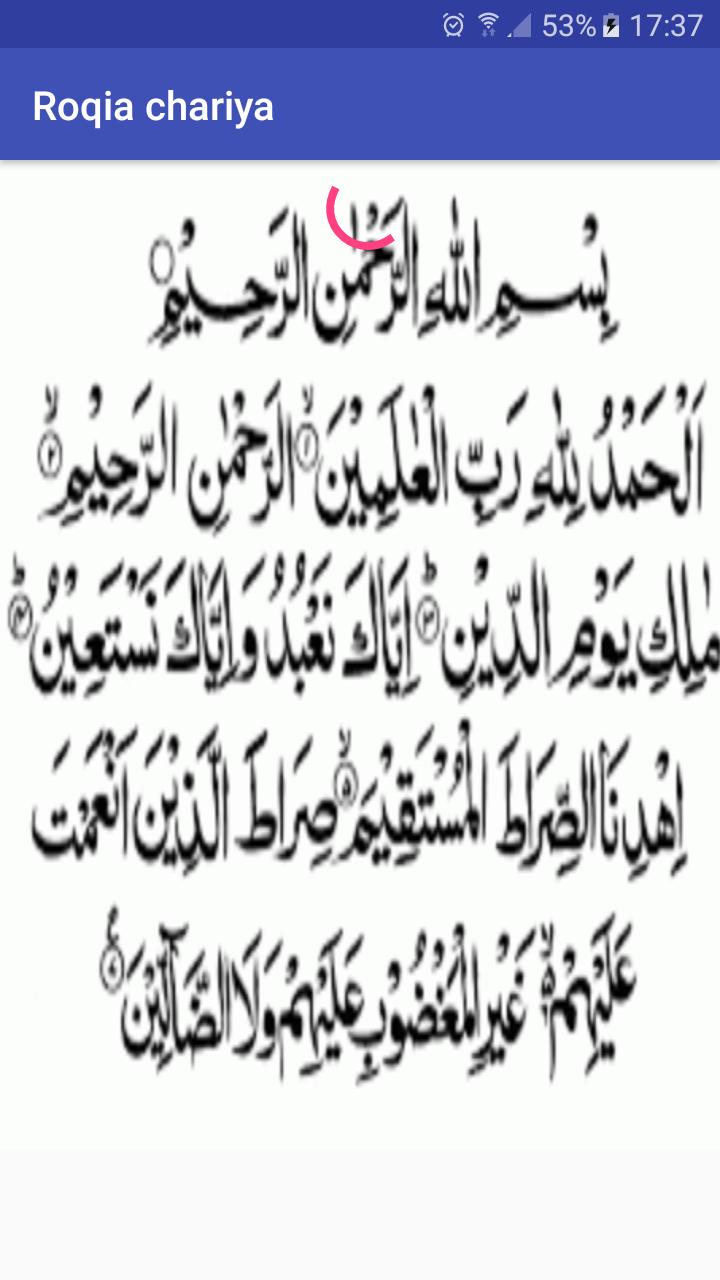 53% 17:37
Roqia chariya
بِسْمِ اللهِ الرَّحْمٰنِ الرَّحِيْمِ
اَلْحَمْدُ لِلّٰهِ رَبِّ الْعٰلَمِيْنَ ۙ﴿۱﴾ الرَّحْمٰنِ الرَّحِيْمِ ۙ﴿۲﴾
مٰلِكِ يَوْمِ الدِّيْنِ ؕ﴿۳﴾ اِيَّاكَ نَعْبُدُ وَاِيَّاكَ نَسْتَعِيْنُ ؕ﴿۴﴾
اِهْدِنَا الصِّرَاطَ الْمُسْتَقِيْمَ ۙ﴿۵﴾ صِرَاطَ الَّذِيْنَ اَنْعَمْتَ
عَلَيْهِمْ ۙ۬ۦ غَيْرِ الْمَغْضُوْبِ عَلَيْهِمْ وَلَا الضَّآلِّيْنَ ﴿۶﴾ ع